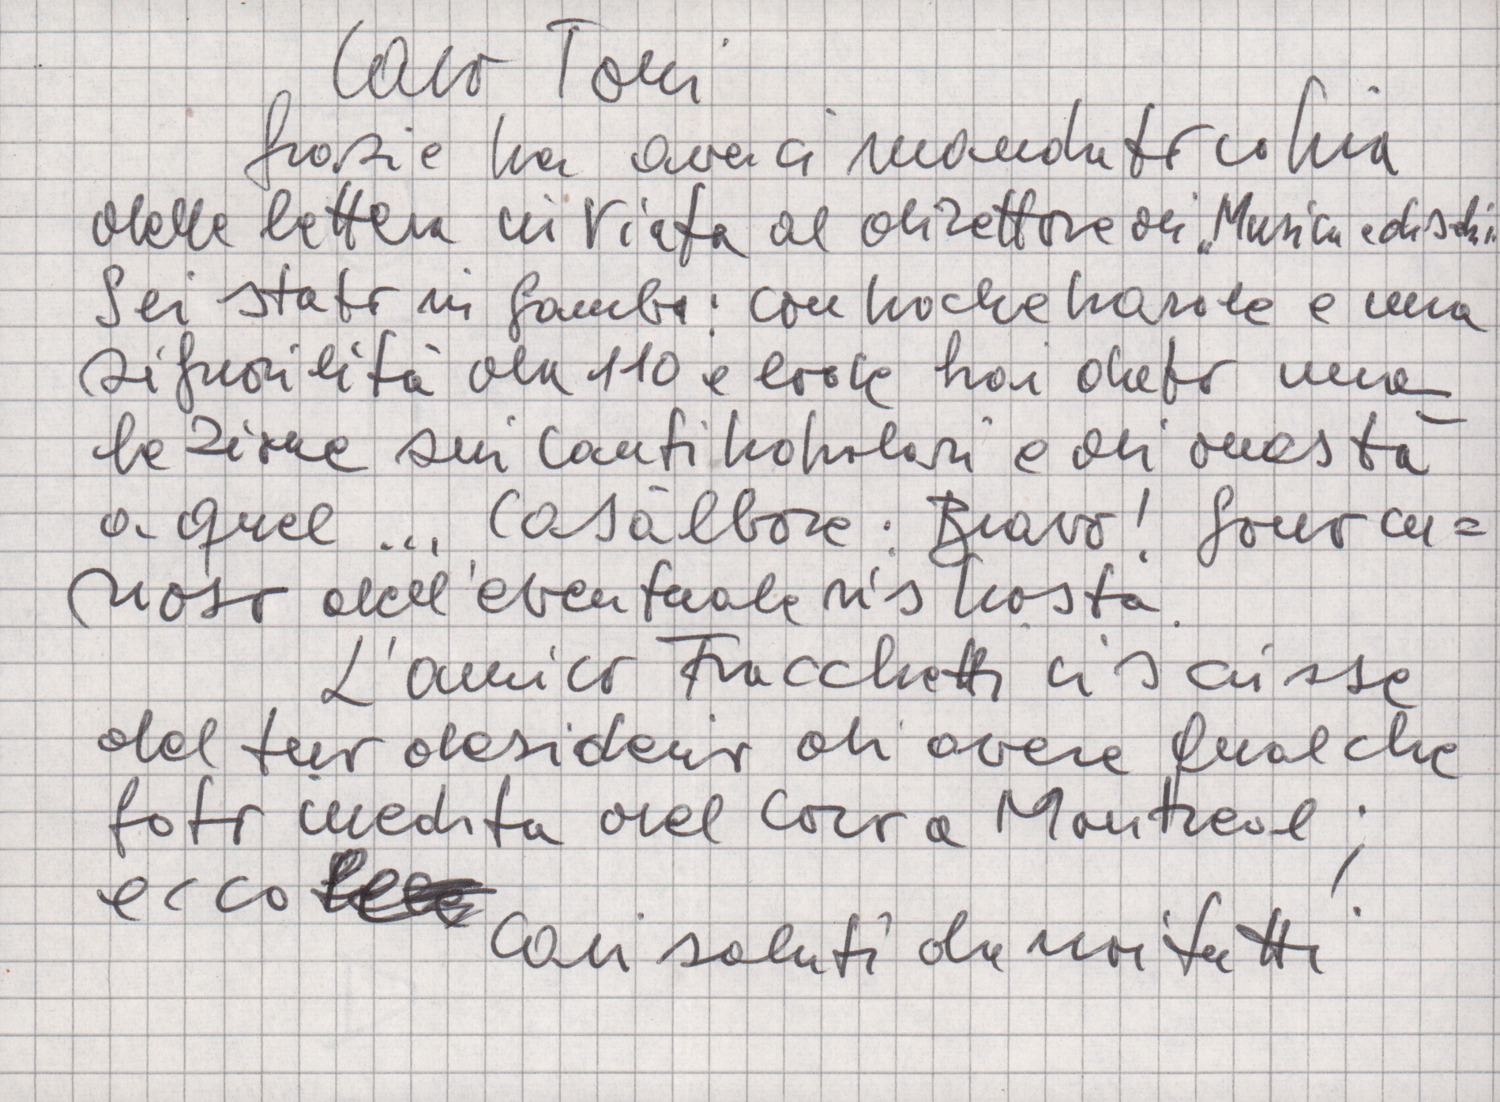 Caro Toni
grazie per averci mandato copia
della lettera inviata al direttore di "Musica e dischi"
Sei stato in gamba: con poche parole e una
signorilità da 110 e lode hai dato una
lezione sui canti popolari e di onestà
a quel ... Casalbore: Bravo! Sono cu=
rioso dell'eventuale risposta.
L'amico Fracchetti ci scrisse
del tuo desiderio di avere qualche
foto inedita del Coro a Montreal;
ecco
Cari saluti da noi tutti!